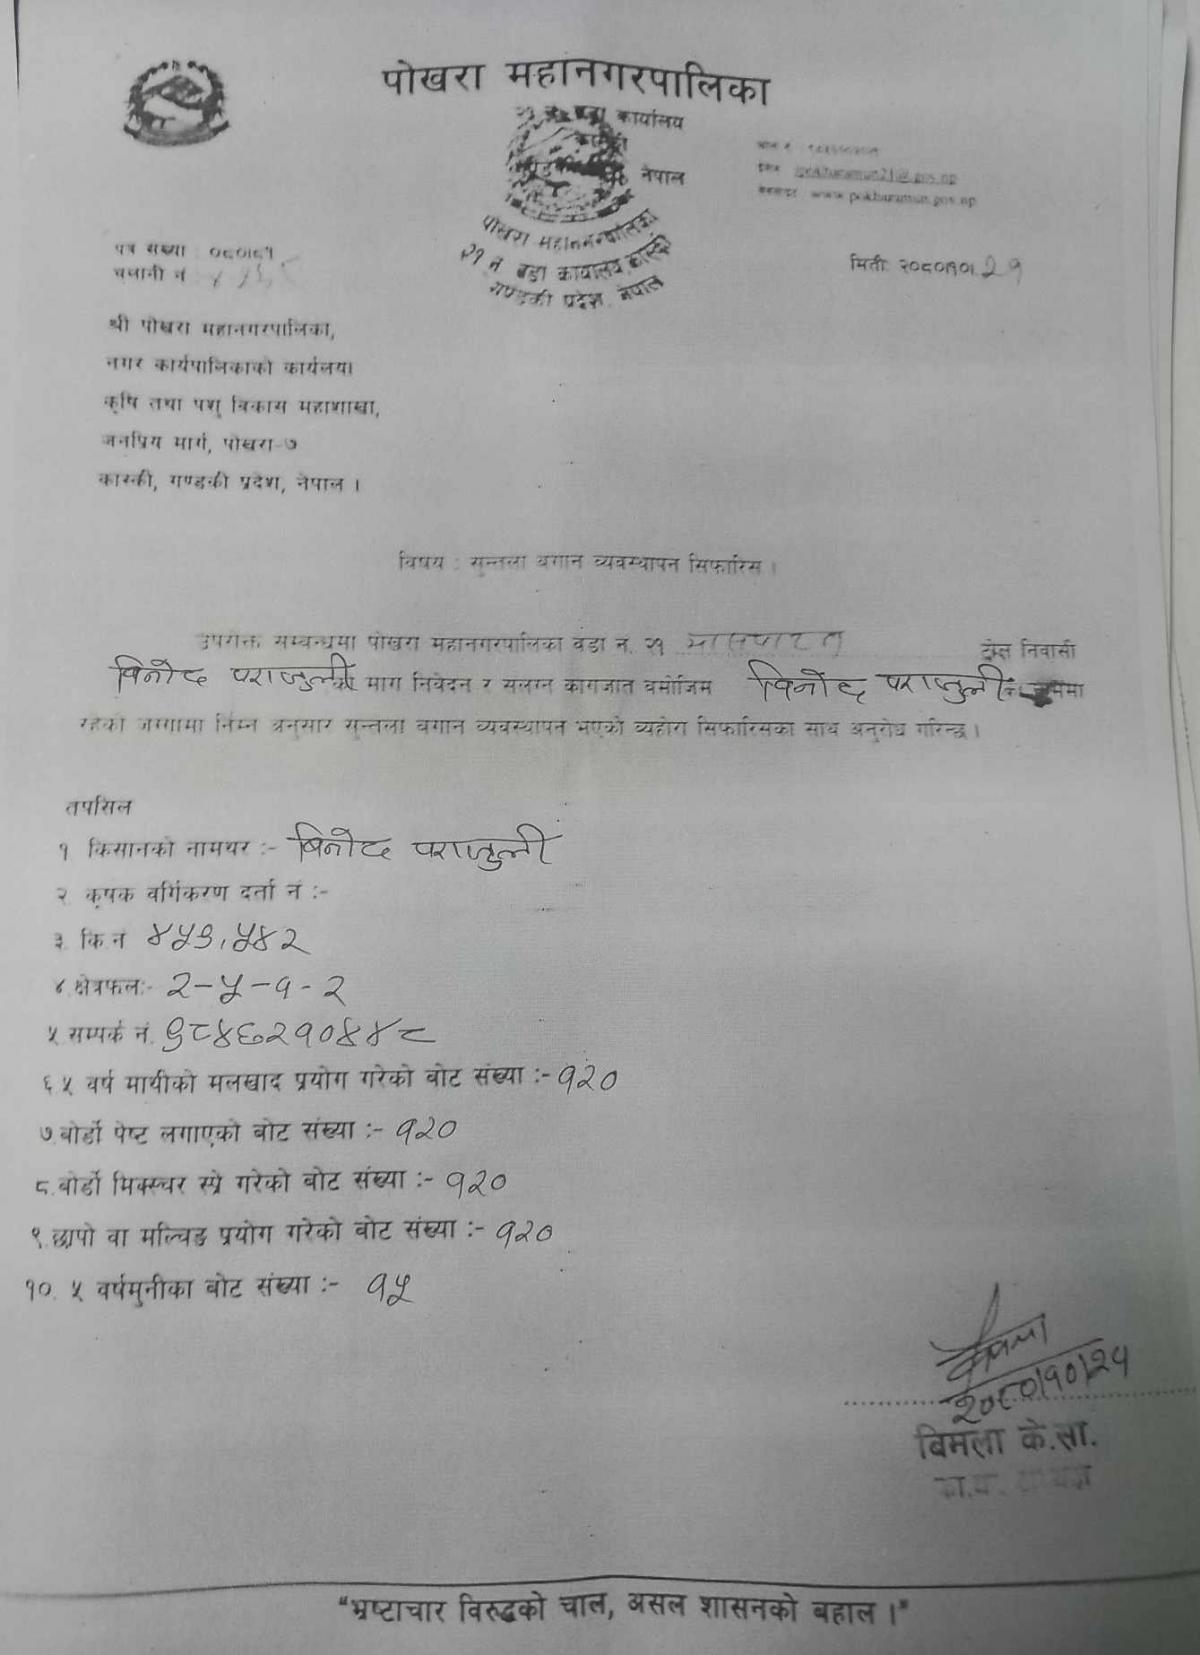 पोखरा महानगरपालिका
२१ नं. वडा कार्यालय
कास्की
नेपाल
पोखरा महानगरपालिका
२१ न. वडा कार्यालय, कास्की
गण्डकी प्रदेश, नेपाल
pokharamun21@gov.np
www.pokharamun.gov.np
पत्र संख्या : ०८०।८१
चलानी नं
मिती: २०८०।१०।२१
श्री पोखरा महानगरपालिका,
नगर कार्यपालिकाको कार्यलय।
कृषि तथा पशु विकास महाशाखा,
जनप्रिय मार्ग, पोखरा-७
कास्की, गण्डकी प्रदेश, नेपाल ।
विषय : सुन्तला बगान व्यवस्थापन सिफारिस ।
उपरोक्त सम्बन्धमा पोखरा महानगरपालिका वडा न. २१ टोल निवासी
बिनोद पराजुली को माग निवेदन र संलग्न कागजात बमोजिम बिनोद पराजुली
रहेको जग्गामा निम्न अनुसार सुन्तला बगान व्यवस्थापन भएको व्यहोरा सिफारिसका साथ अनुरोध गरिन्छ ।
तपसिल
१ किसानको नामथर :- बिनोद पराजुली
२. कृषक वर्गिकरण दर्ता नं :-
३. कि.नं ४५९, ५४२
४.क्षेत्रफल:- २-५-१-२
५.सम्पर्क नं. ९८४६२१०४४८
६.५ वर्ष माथीको मलखाद प्रयोग गरेको बोट संख्या :- १२०
७.बोर्डो पेष्ट लगाएको बोट संख्या :- १२०
८.बोर्डो मिक्स्चर स्प्रे गरेको बोट संख्या :- १२०
९.छापो वा मल्चिङ प्रयोग गरेको बोट संख्या :- १२०
१०. ५ वर्षमुनीका बोट संख्या :- १५
२०८०।१०।२१
बिमला के.सी.
का.वा. अध्यक्ष
"भ्रष्टाचार विरुद्धको चाल, असल शासनको बहाल ।"